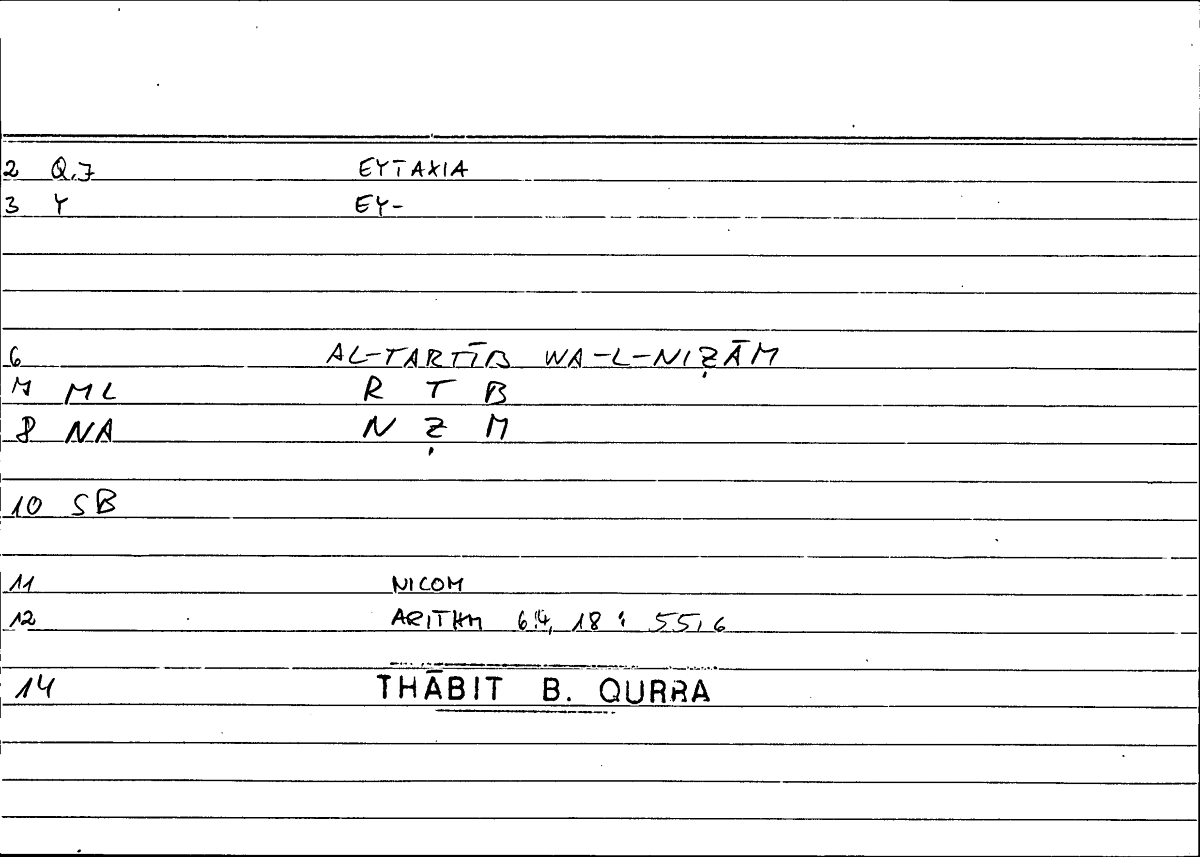 2 Q.7 EYTAXIA
3 Y EY-
6 AL-TARTĪB WA-L-NIẒĀM
7 ML R T B
8 NA N Ẓ M
10 SB
11 NICOM
12 ARITHM 64, 18 : 55,6
14 THĀBIT B. QURRA